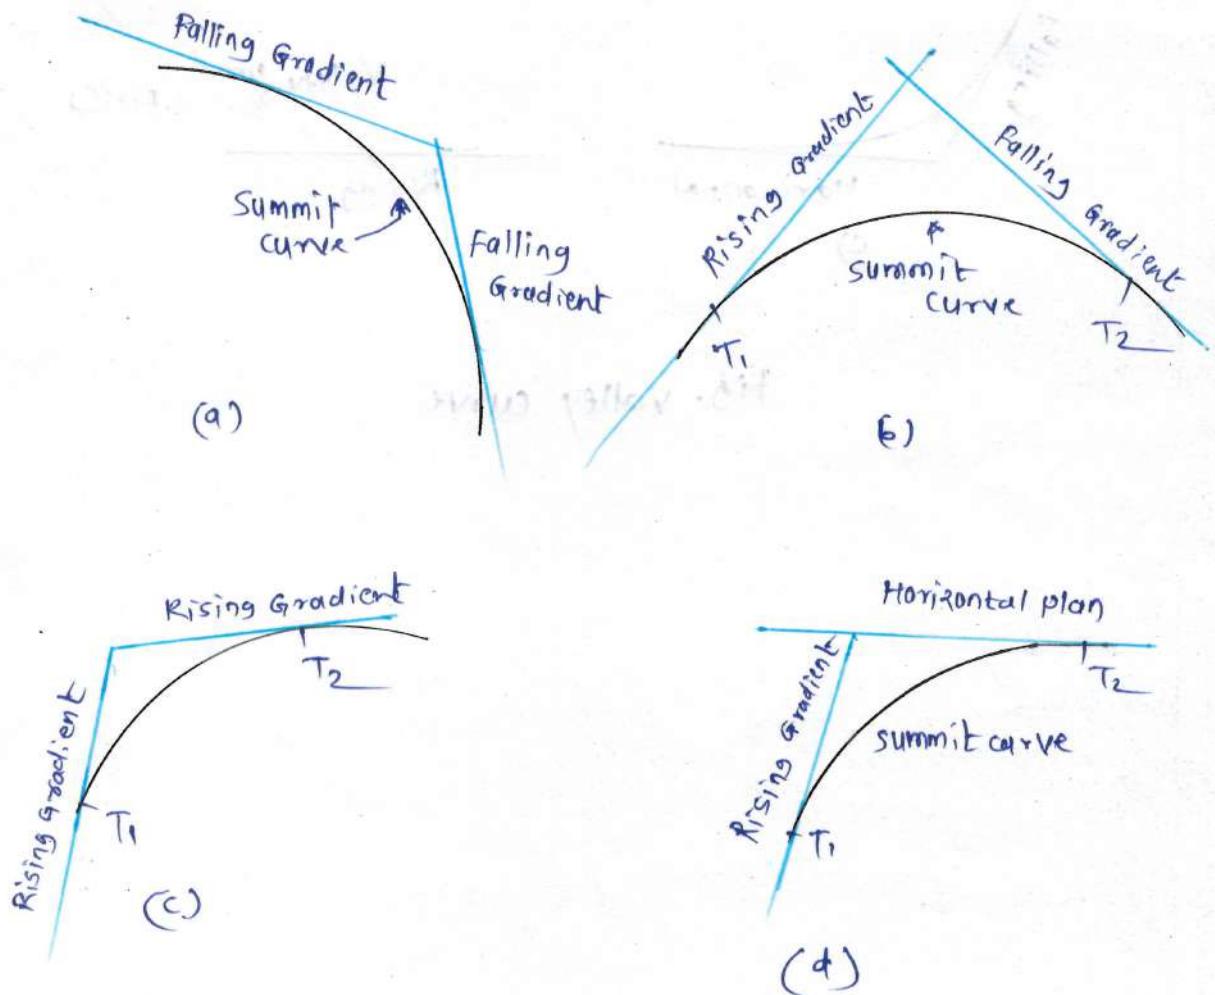 Falling Gradient
Summit
curve
Falling
Gradient
(a)
Rising Gradient
Falling Gradient
Summit
curve
T1
T2
(b)
Rising Gradient
T2
Rising Gradient
T1
(c)
Horizontal plan
Rising Gradient
T2
summit curve
T1
(d)
Fig. Valley curve